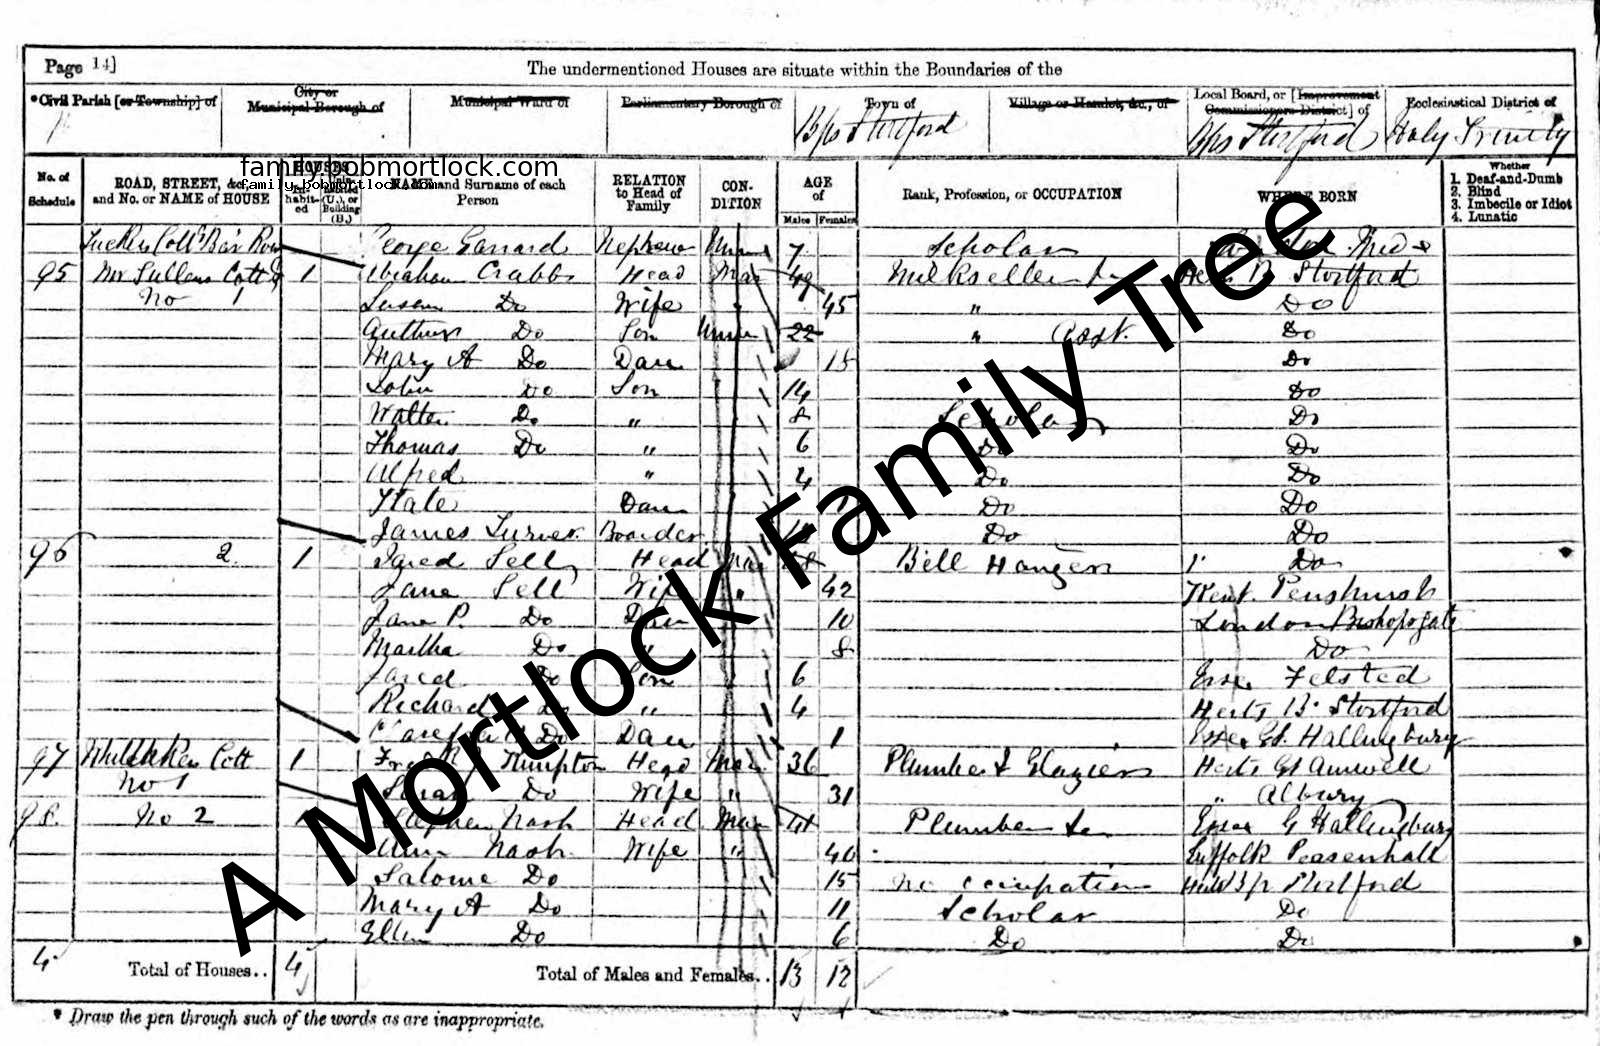 Page 14]
The undermentioned Houses are situate within the Boundaries of the
*Civil Parish [or Township] of City or Municipal Borough of Municipal Ward of Parliamentary Borough of Town of Village or Hamlet, &c., of Local Board, or [Improvement Commissioners District] of Ecclesiastical District of
Bps Stortford Bps Stortford Holy Trinity
family.bobmortlock.com
family.bobmortlock.com
No. of Schedule ROAD, STREET, &c., and No. or NAME of HOUSE HOUSES Inhabited Uninhabited (U.), or Building (B.) NAME and Surname of each Person RELATION to Head of Family CONDITION AGE of Males Females Rank, Profession, or OCCUPATION WHERE BORN Whether 1. Deaf-and-Dumb 2. Blind 3. Imbecile or Idiot 4. Lunatic
George Garrard Nephew Unm 7 Scholar
95 Cott 1 Abraham Crabb Head Mar 49 Milkseller Herts B. Stortford
No 1 Susan Do Wife " 45 " Do
Arthur Do Son Unm 22 " Asst. Do
Mary A Do Daur 15 Do
John Do Son 14 Do
Walter Do " 8 Scholar Do
Thomas Do " 6 Do Do
Alfred " 4 Do Do
Kate Daur 1 Do Do
James Turner Boarder Do Do
96 2 1 Jared Sell Head Mar Bell Hanger " Do
Jane Sell Wife " 42 Kent Penshurst
Jane P. Do Daur 10 London Bishopsgate
Martha Do " 8 Do
Jared Do Son 6 Essex Felsted
Richard Do " 4 Herts B. Stortford
Do Daur 1 Essex Gt. Hallingbury
97 Whittaker Cott 1 Kimpton Head Mar 36 Plumber & Glazier Herts Gt Amwell
No 1 Sarah Do Wife " 31 " Albury
98 No 2 Stephen Nash Head Mar 41 Plumber Essex G Hallingbury
Ann Nash Wife " 40 Suffolk Peasenhall
Salome Do 15 No occupation Bp Stortford
Mary A Do 11 Scholar Do
Ellen Do 6 Do Do
4 Total of Houses.. 4 Total of Males and Females.. 13 12
* Draw the pen through such of the words as are inappropriate.
A Mortlock Family Tree